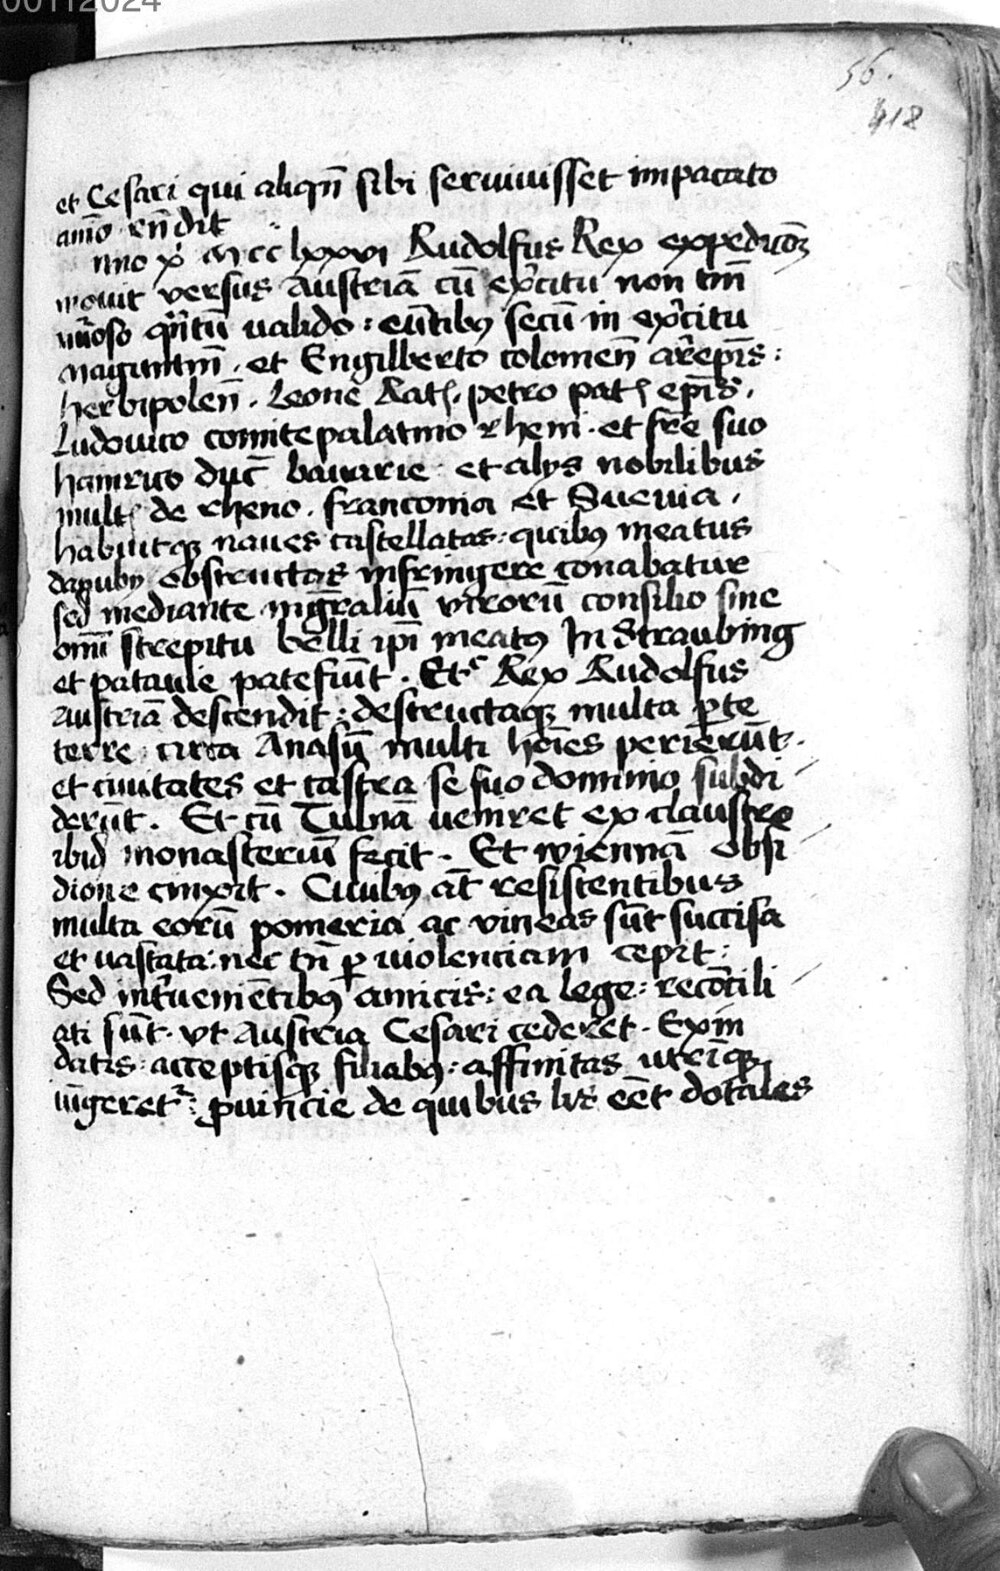 00112024
56.
418
et Cesari qui aliqñ sibi servivisset impacato
aīo rñdit
nno x̄ Mcc lxxvi Rudolfus Rex expedicōʒ
movit versus Austriā cū ex̄citu non tm̄
nūoso qn̄tū valido : eūtibꝯ secū in ex̄citu
Maguntiñ . et Engilberto colomeñ arēpis :
herbipoleñ . Leone Rat . petro pat ep̄is .
Ludovico comite palatino rheni . et fr̄e suo
hainrico duc̄ bavarie . et alys nobilibus
mult de rheno . franconia et Suevia .
habuitqꝫ naves castellatas : quibꝯ meatus
danubij obstructas infringere conabatur
sed mediante mḡralium virorū consilio sine
omī strepitu belli ip̄i meatꝯ In Straubing
et patavie patefiūt . Etᶜ Rex Rudolfus
Austriā descendit : destructaqꝫ multa p̄te
terre circa Anasū multi hoīes perierūt .
et civitates et castra se suo domino subdi
derūt . Et cū Tulnā veniret ex claustro
ibid monasteriū fecit . Et wiennā obsi
dione cinxit . Civibꝯ aūt resistentibus
multa eorū pomeria ac vineas sūt succisa
et vastata : nec tñ ꝑ violenciam cepit :
Sed int̄venientibꝯ amicis : ea lege : recōcili
ati sūt . vt Austria Cesari cederet . Exin
datis : acceptisqꝫ filiabꝯ : affinitas utrīqꝫ
iūgeretr : ꝓvincie de quibus lis eēt dotales